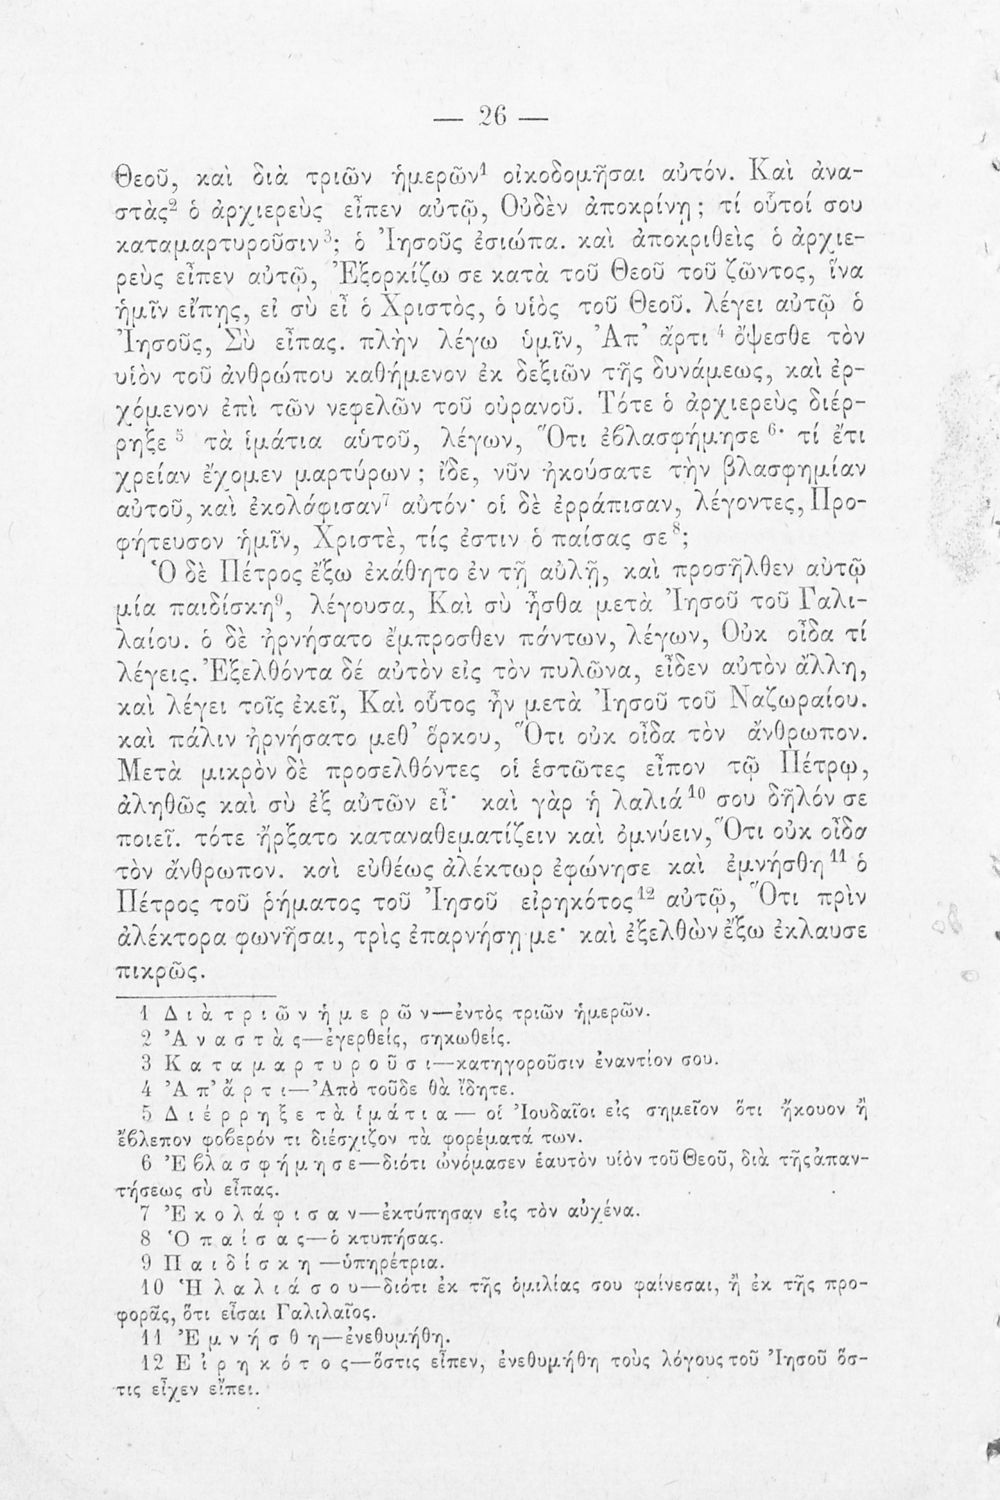 — 26 —
Θεοῦ, καὶ διὰ τριῶν ἡμερῶν¹ οἰκοδομῆσαι αὐτόν. Καὶ ἀνα-
στὰς² ὁ ἀρχιερεὺς εἶπεν αὐτῷ, Οὐδὲν ἀποκρίνῃ; τί οὗτοί σου
καταμαρτυροῦσιν³; ὁ Ἰησοῦς ἐσιώπα. καὶ ἀποκριθεὶς ὁ ἀρχιε-
ρεὺς εἶπεν αὐτῷ, Ἐξορκίζω σε κατὰ τοῦ Θεοῦ τοῦ ζῶντος, ἵνα
ἡμῖν εἴπῃς, εἰ σὺ εἶ ὁ Χριστὸς, ὁ υἱὸς τοῦ Θεοῦ. λέγει αὐτῷ ὁ
Ἰησοῦς, Σὺ εἶπας. πλὴν λέγω ὑμῖν, Ἀπ' ἄρτι ⁴ ὄψεσθε τὸν
υἱὸν τοῦ ἀνθρώπου καθήμενον ἐκ δεξιῶν τῆς δυνάμεως, καὶ ἐρ-
χόμενον ἐπὶ τῶν νεφελῶν τοῦ οὐρανοῦ. Τότε ὁ ἀρχιερεὺς διέρ-
ρηξε ⁵ τὰ ἱμάτια αὑτοῦ, λέγων, Ὅτι ἐβλασφήμησε ⁶· τί ἔτι
χρείαν ἔχομεν μαρτύρων; ἴδε, νῦν ἠκούσατε τὴν βλασφημίαν
αὐτοῦ, καὶ ἐκολάφισαν⁷ αὐτόν· οἱ δὲ ἐρράπισαν, λέγοντες, Προ-
φήτευσον ἡμῖν, Χριστὲ, τίς ἐστιν ὁ παίσας σε⁸;
Ὁ δὲ Πέτρος ἔξω ἐκάθητο ἐν τῇ αὐλῇ, καὶ προσῆλθεν αὐτῷ
μία παιδίσκη⁹, λέγουσα, Καὶ σὺ ἦσθα μετὰ Ἰησοῦ τοῦ Γαλι-
λαίου. ὁ δὲ ἠρνήσατο ἔμπροσθεν πάντων, λέγων, Οὐκ οἶδα τί
λέγεις. Ἐξελθόντα δέ αὐτὸν εἰς τὸν πυλῶνα, εἶδεν αὐτὸν ἄλλη,
καὶ λέγει τοῖς ἐκεῖ, Καὶ οὗτος ἦν μετὰ Ἰησοῦ τοῦ Ναζωραίου.
καὶ πάλιν ἠρνήσατο μεθ' ὅρκου, Ὅτι οὐκ οἶδα τὸν ἄνθρωπον.
Μετὰ μικρὸν δὲ προσελθόντες οἱ ἑστῶτες εἶπον τῷ Πέτρῳ,
ἀληθῶς καὶ σὺ ἐξ αὐτῶν εἶ· καὶ γὰρ ἡ λαλιά¹⁰ σου δῆλόν σε
ποιεῖ. τότε ἤρξατο καταναθεματίζειν καὶ ὀμνύειν, Ὅτι οὐκ οἶδα
τὸν ἄνθρωπον. καὶ εὐθέως ἀλέκτωρ ἐφώνησε καὶ ἐμνήσθη¹¹ ὁ
Πέτρος τοῦ ῥήματος τοῦ Ἰησοῦ εἰρηκότος¹² αὐτῷ, Ὅτι πρὶν
ἀλέκτορα φωνῆσαι, τρὶς ἐπαρνήσῃ με· καὶ ἐξελθὼν ἔξω ἐκλαυσε
πικρῶς.
1 Διὰ τριῶν ἡμερῶν—ἐντὸς τριῶν ἡμερῶν.
2 Ἀναστὰς—ἐγερθείς, σηκωθείς.
3 Καταμαρτυροῦσι—κατηγοροῦσιν ἐναντίον σου.
4 Ἀπ' ἄρτι—Ἀπὸ τοῦδε θὰ ἴδητε.
5 Διέρρηξε τὰ ἱμάτια— οἱ Ἰουδαῖοι εἰς σημεῖον ὅτι ἤκουον ἢ
ἔβλεπον φοβερόν τι διέσχιζον τὰ φορέματά των.
6 Ἐβλασφήμησε—διότι ὠνόμασεν ἑαυτὸν υἱὸν τοῦ Θεοῦ, διὰ τῆς ἀπαν-
τήσεως σὺ εἶπας.
7 Ἐκολάφισαν—ἐκτύπησαν εἰς τὸν αὐχένα.
8 Ὁ παίσας—ὁ κτυπήσας.
9 Παιδίσκη—ὑπηρέτρια.
10 Ἡ λαλιά σου—διότι ἐκ τῆς ὁμιλίας σου φαίνεσαι, ἢ ἐκ τῆς προ-
φορᾶς, ὅτι εἶσαι Γαλιλαῖος.
11 Ἐμνήσθη—ἐνεθυμήθη.
12 Εἰρηκότος—ὅστις εἶπεν, ἐνεθυμήθη τοὺς λόγους τοῦ Ἰησοῦ ὅσ-
τις εἶχεν εἴπει.